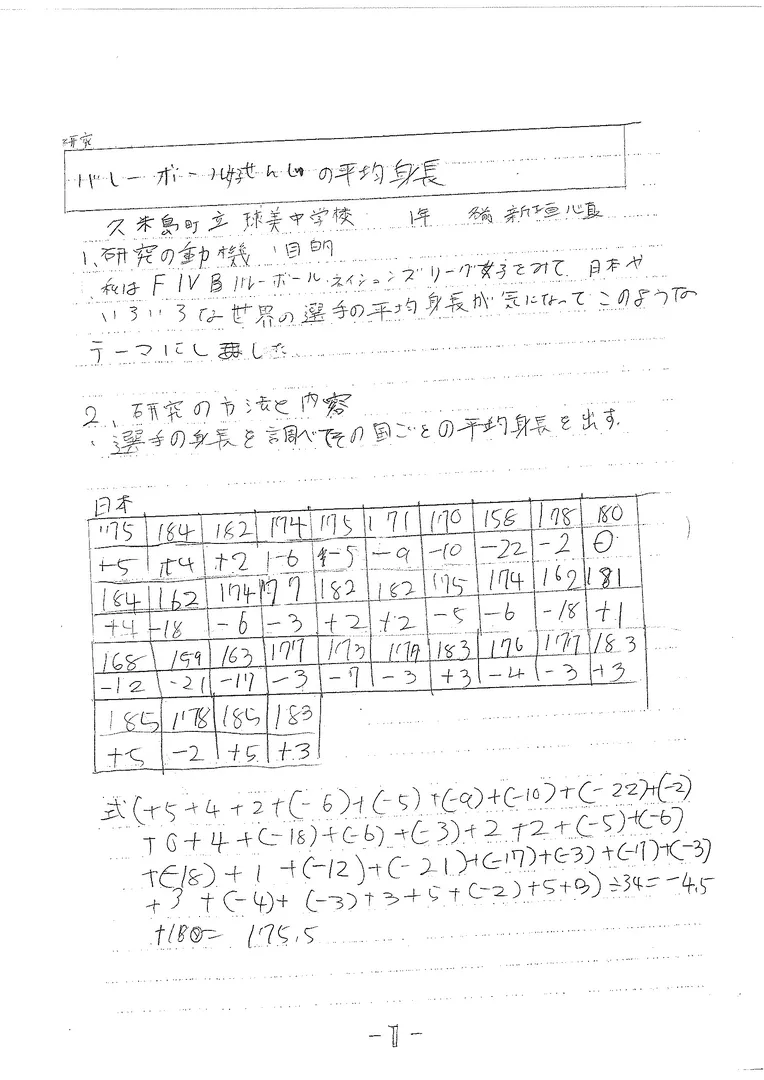 研究
バレーボール女子せんしゅの平均身長
久米島町立 球美中学校 1年 新垣心直
1、研究の動機、目的
私はFIVBバレーボールネイションズリーグ女子をみて、日本や
いろいろな世界の選手の平均身長が気になってこのような
テーマにしました
2、研究の方法と内容
・選手の身長を調べてその国ごとの平均身長を出す。
日本
175 184 182 174 175 171 170 158 178 180
+5 +4 +2 -6 -5 -9 -10 -22 -2 0
184 162 174 177 182 182 175 174 162 181
+4 -18 -6 -3 +2 +2 -5 -6 -18 +1
168 159 163 177 173 179 183 176 177 183
-12 -21 -17 -3 -7 -3 +3 -4 -3 +3
185 178 185 183
+5 -2 +5 +3
式(+5+4+2+(-6)+(-5)+(-9)+(-10)+(-22)+(-2)
+0+4+(-18)+(-6)+(-3)+2+2+(-5)+(-6)
+(-18)+1+(-12)+(-21)+(-17)+(-3)+(-7)+(-3)
+3+(-4)+(-3)+3+5+(-2)+5+3)÷34=-4.5
+180=175.5
-1-